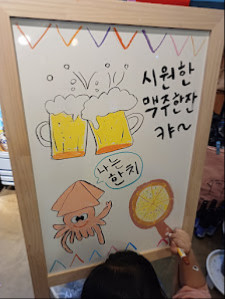 시원한
맥주한잔
캬~
나는
한치